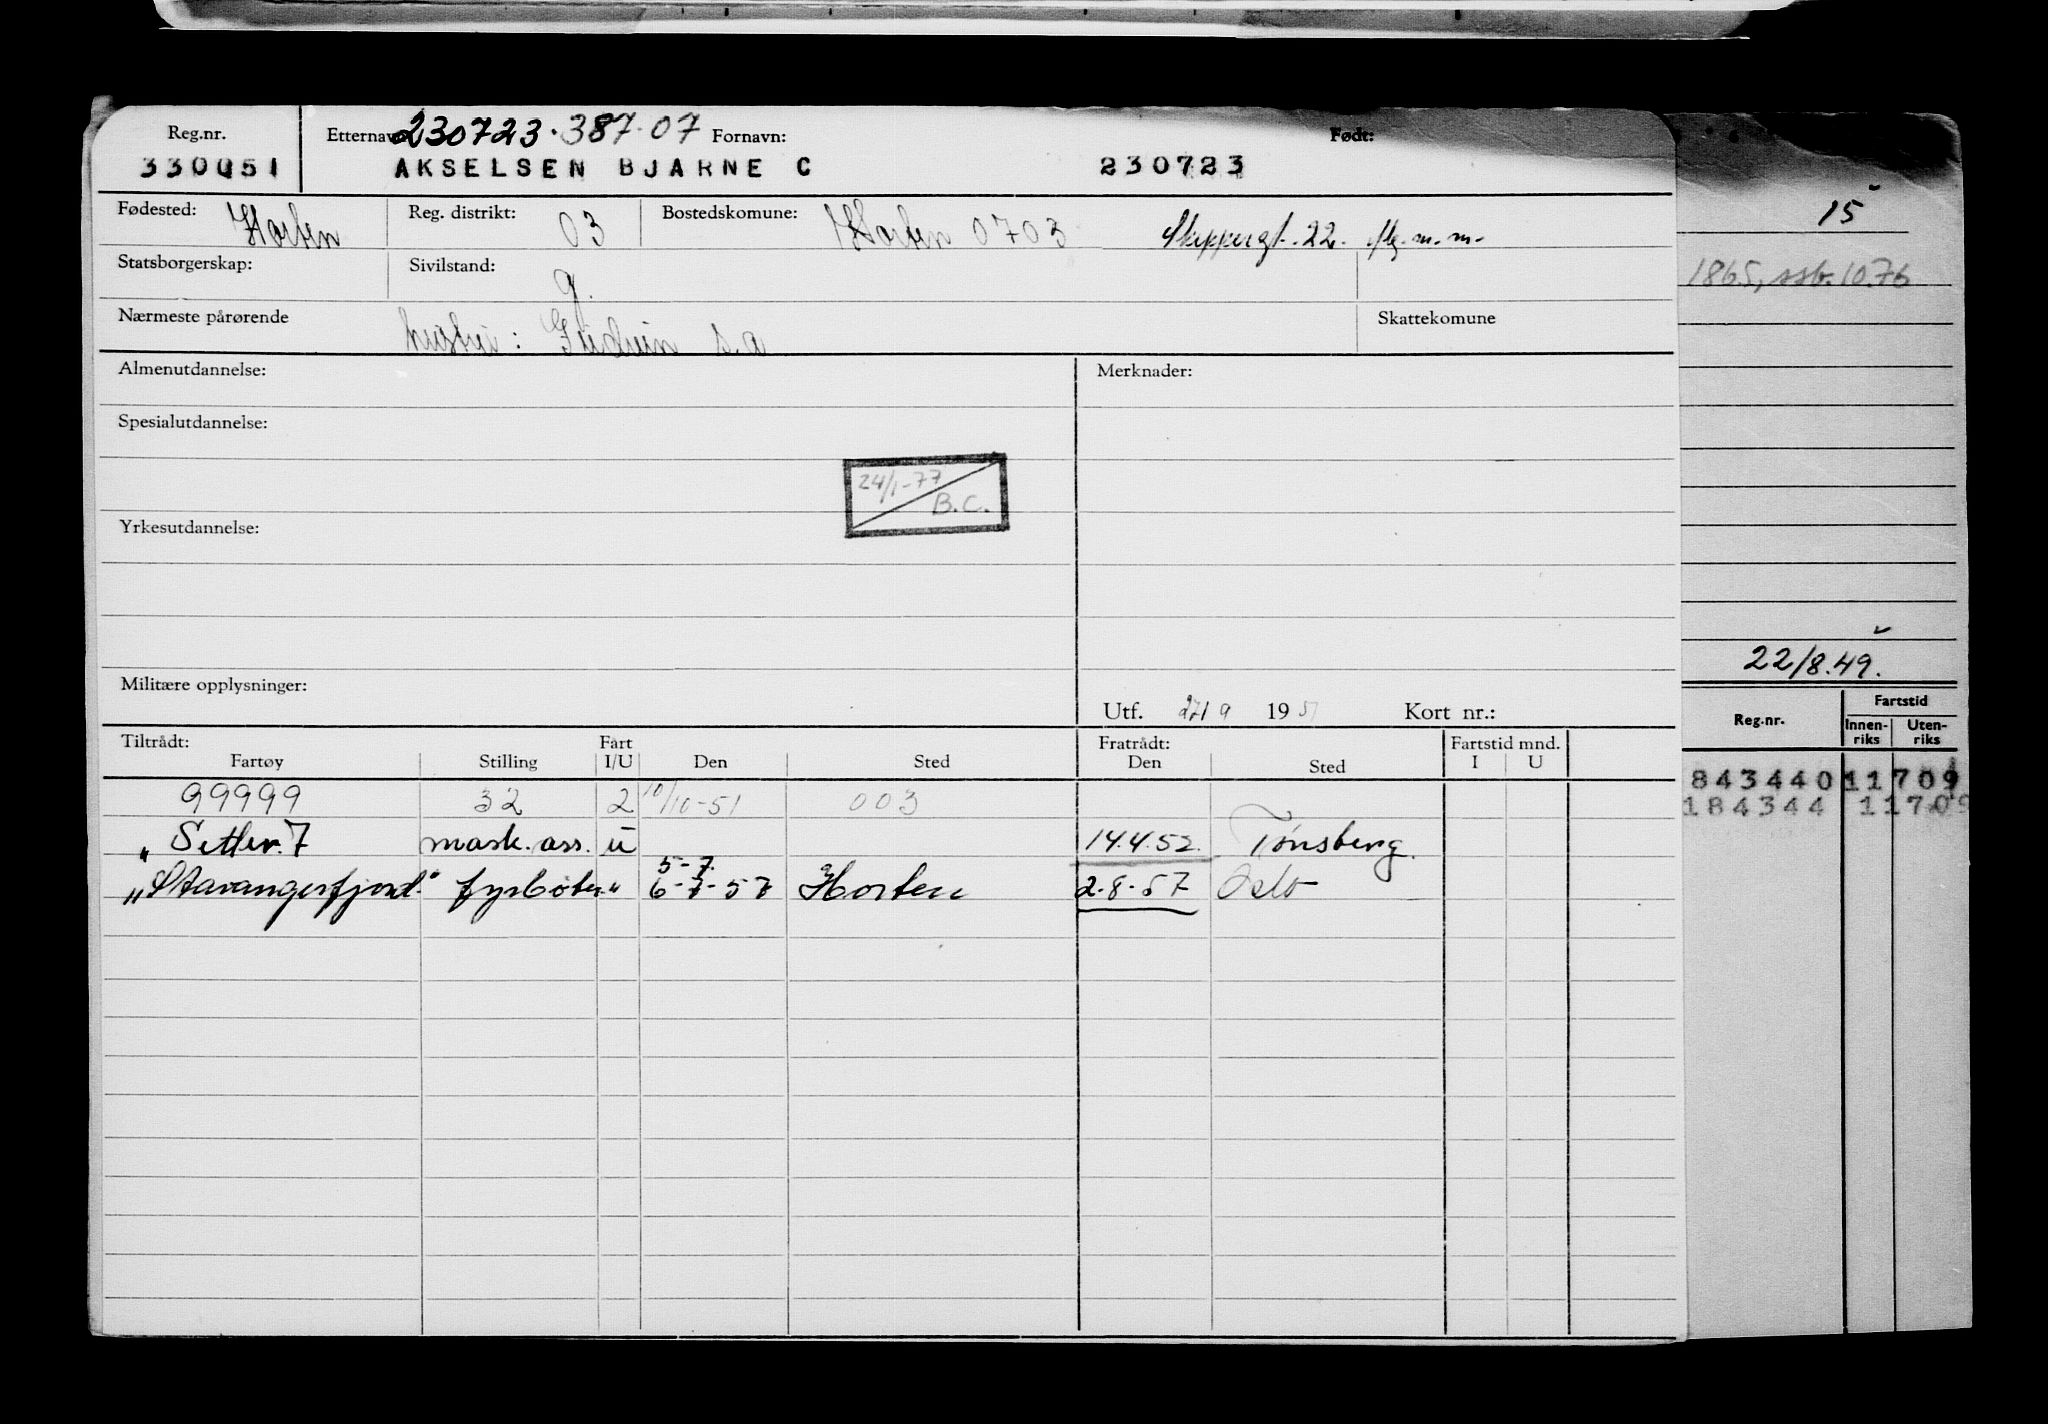 Reg.nr. Etternavn 230723.387.07 Fornavn: Født:
330051 AKSELSEN BJARNE C 230723
Fødested: Horten Reg. distrikt: 03 Bostedskomune: Horten 0703 Skippergt. 22.
15
Statsborgerskap: Sivilstand: g.
1865, ssb. 10.76
Nærmeste pårørende hustru: s.a Skattekomune
Almenutdannelse: Merknader:
Spesialutdannelse:
24/1-77
B.C.
Yrkesutdannelse:
22/8.49.
Militære opplysninger:
Utf. 27/9 1951 Kort nr.:
Reg.nr. Fartstid
Innen-riks Uten-riks
Tiltrådt: Fart Fratrådt: Fartstid mnd.
Fartøy Stilling I/U Den Sted Den Sted I U
99999 32 2 10/10-51 003
843440 11709
184344 11709
"Setter. 7 mask. ass. u 14.4.52. Tønsberg.
5-7.
"Stavangerfjord" fyrbøter " 6-7-57 Horten 2.8.57 Oslo